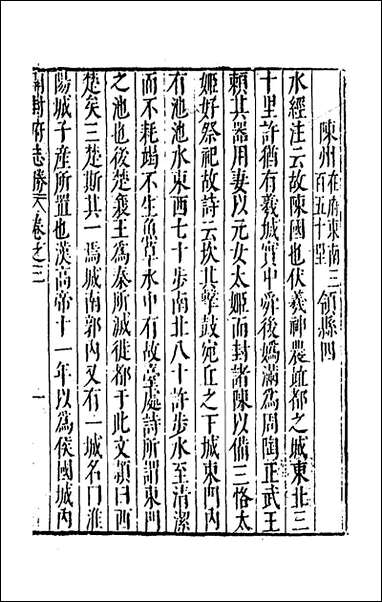 陳州在府東南三百五十里領縣四
水經注云故陳國也伏羲神農竝都之城東北三
十里許猶有羲城實中舜後媯滿為周陶正武王
賴其器用妻以元女太姬而封諸陳以備三恪太
姬好祭祀故詩云坎其擊鼓宛丘之下城東門內
有池池水東西七十步南北八十許步水至清潔
而不耗竭不生魚草水中有故臺處詩所謂東門
之池也後楚襄王為秦所滅徙都于此文潁曰西
楚矣三楚斯其一焉城南郭內又有一城名曰淮
陽城子產所置也漢高帝十一年以為侯國城內
開封府志勝 卷之三 一